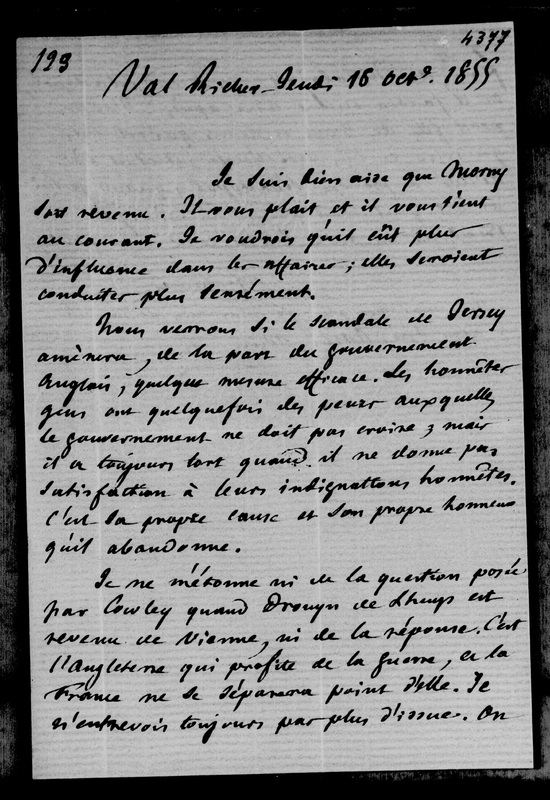 123
4377
Val Richer - Jeudi 18 octe. 1855
Je suis bien aise que Morny
soit revenu. Il vous plait et il vous tient
au courant. Je voudrois qu'il eût plus
d'influence dans les affaires ; elles seroient
conduites plus sensément.
Nous verrons si le scandale de Jersey
amènera, de la part du gouvernement
Anglais, quelque mesure efficace. Les honnêtes
gens ont quelquefois des peurs auxquelles
le gouvernement ne doit pas croire ; mais
il a toujours tort quand il ne donne pas
satisfaction à leurs indignations honnêtes.
C'est sa propre cause et son propre honneur
qu'il abandonne.
Je ne m'étonne ni de la question posée
par Cowley quand Drouyn de Lhuys est
revenu de Vienne, ni de la réponse. C'est
l'Angleterre qui profite de la guerre, et la
France ne se séparera point d'elle. Je
n'entrevois toujours pas plus d'issue. On